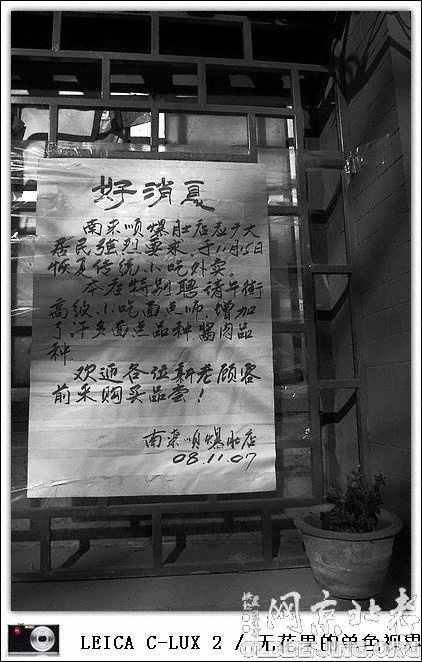 好消息
南来顺爆肚店应广大
居民强烈要求,于11月15日
恢复传统小吃外卖。
本店特别聘请牛街
高级小吃面点师,增加
了许多面点品种,酱肉品
种.
欢迎各位新老顾客
前来购买品尝!
南来顺爆肚店
08.11.07
网京北老
LEICA C-LUX 2 / 无花果的单色视界